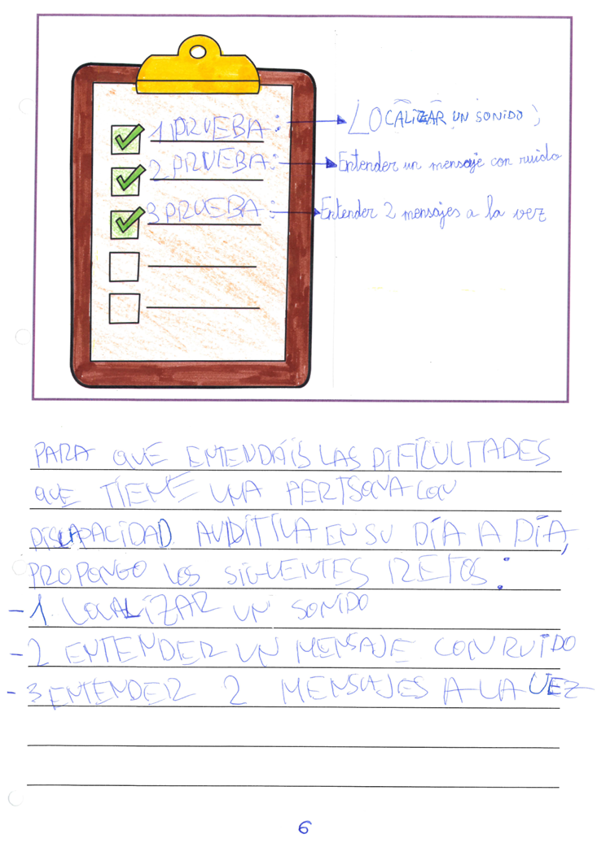 1 PRUEBA: LOCALIZAR UN SONIDO
2 PRUEBA: Entender un mensaje con ruido
3 PRUEBA: Entender 2 mensajes a la vez
PARA QUE ENTENDÁIS LAS DIFICULTADES
QUE TIENE UNA PERSONA CON
DISCAPACIDAD AUDITIVA EN SU DÍA A DÍA,
PROPONGO LOS SIGUENTES RETOS:
-1. LOCALIZAR UN SONIDO
-2 ENTENDER UN MENSAJE CON RUIDO
-3 ENTENDER 2 MENSAJES A LA VEZ
6